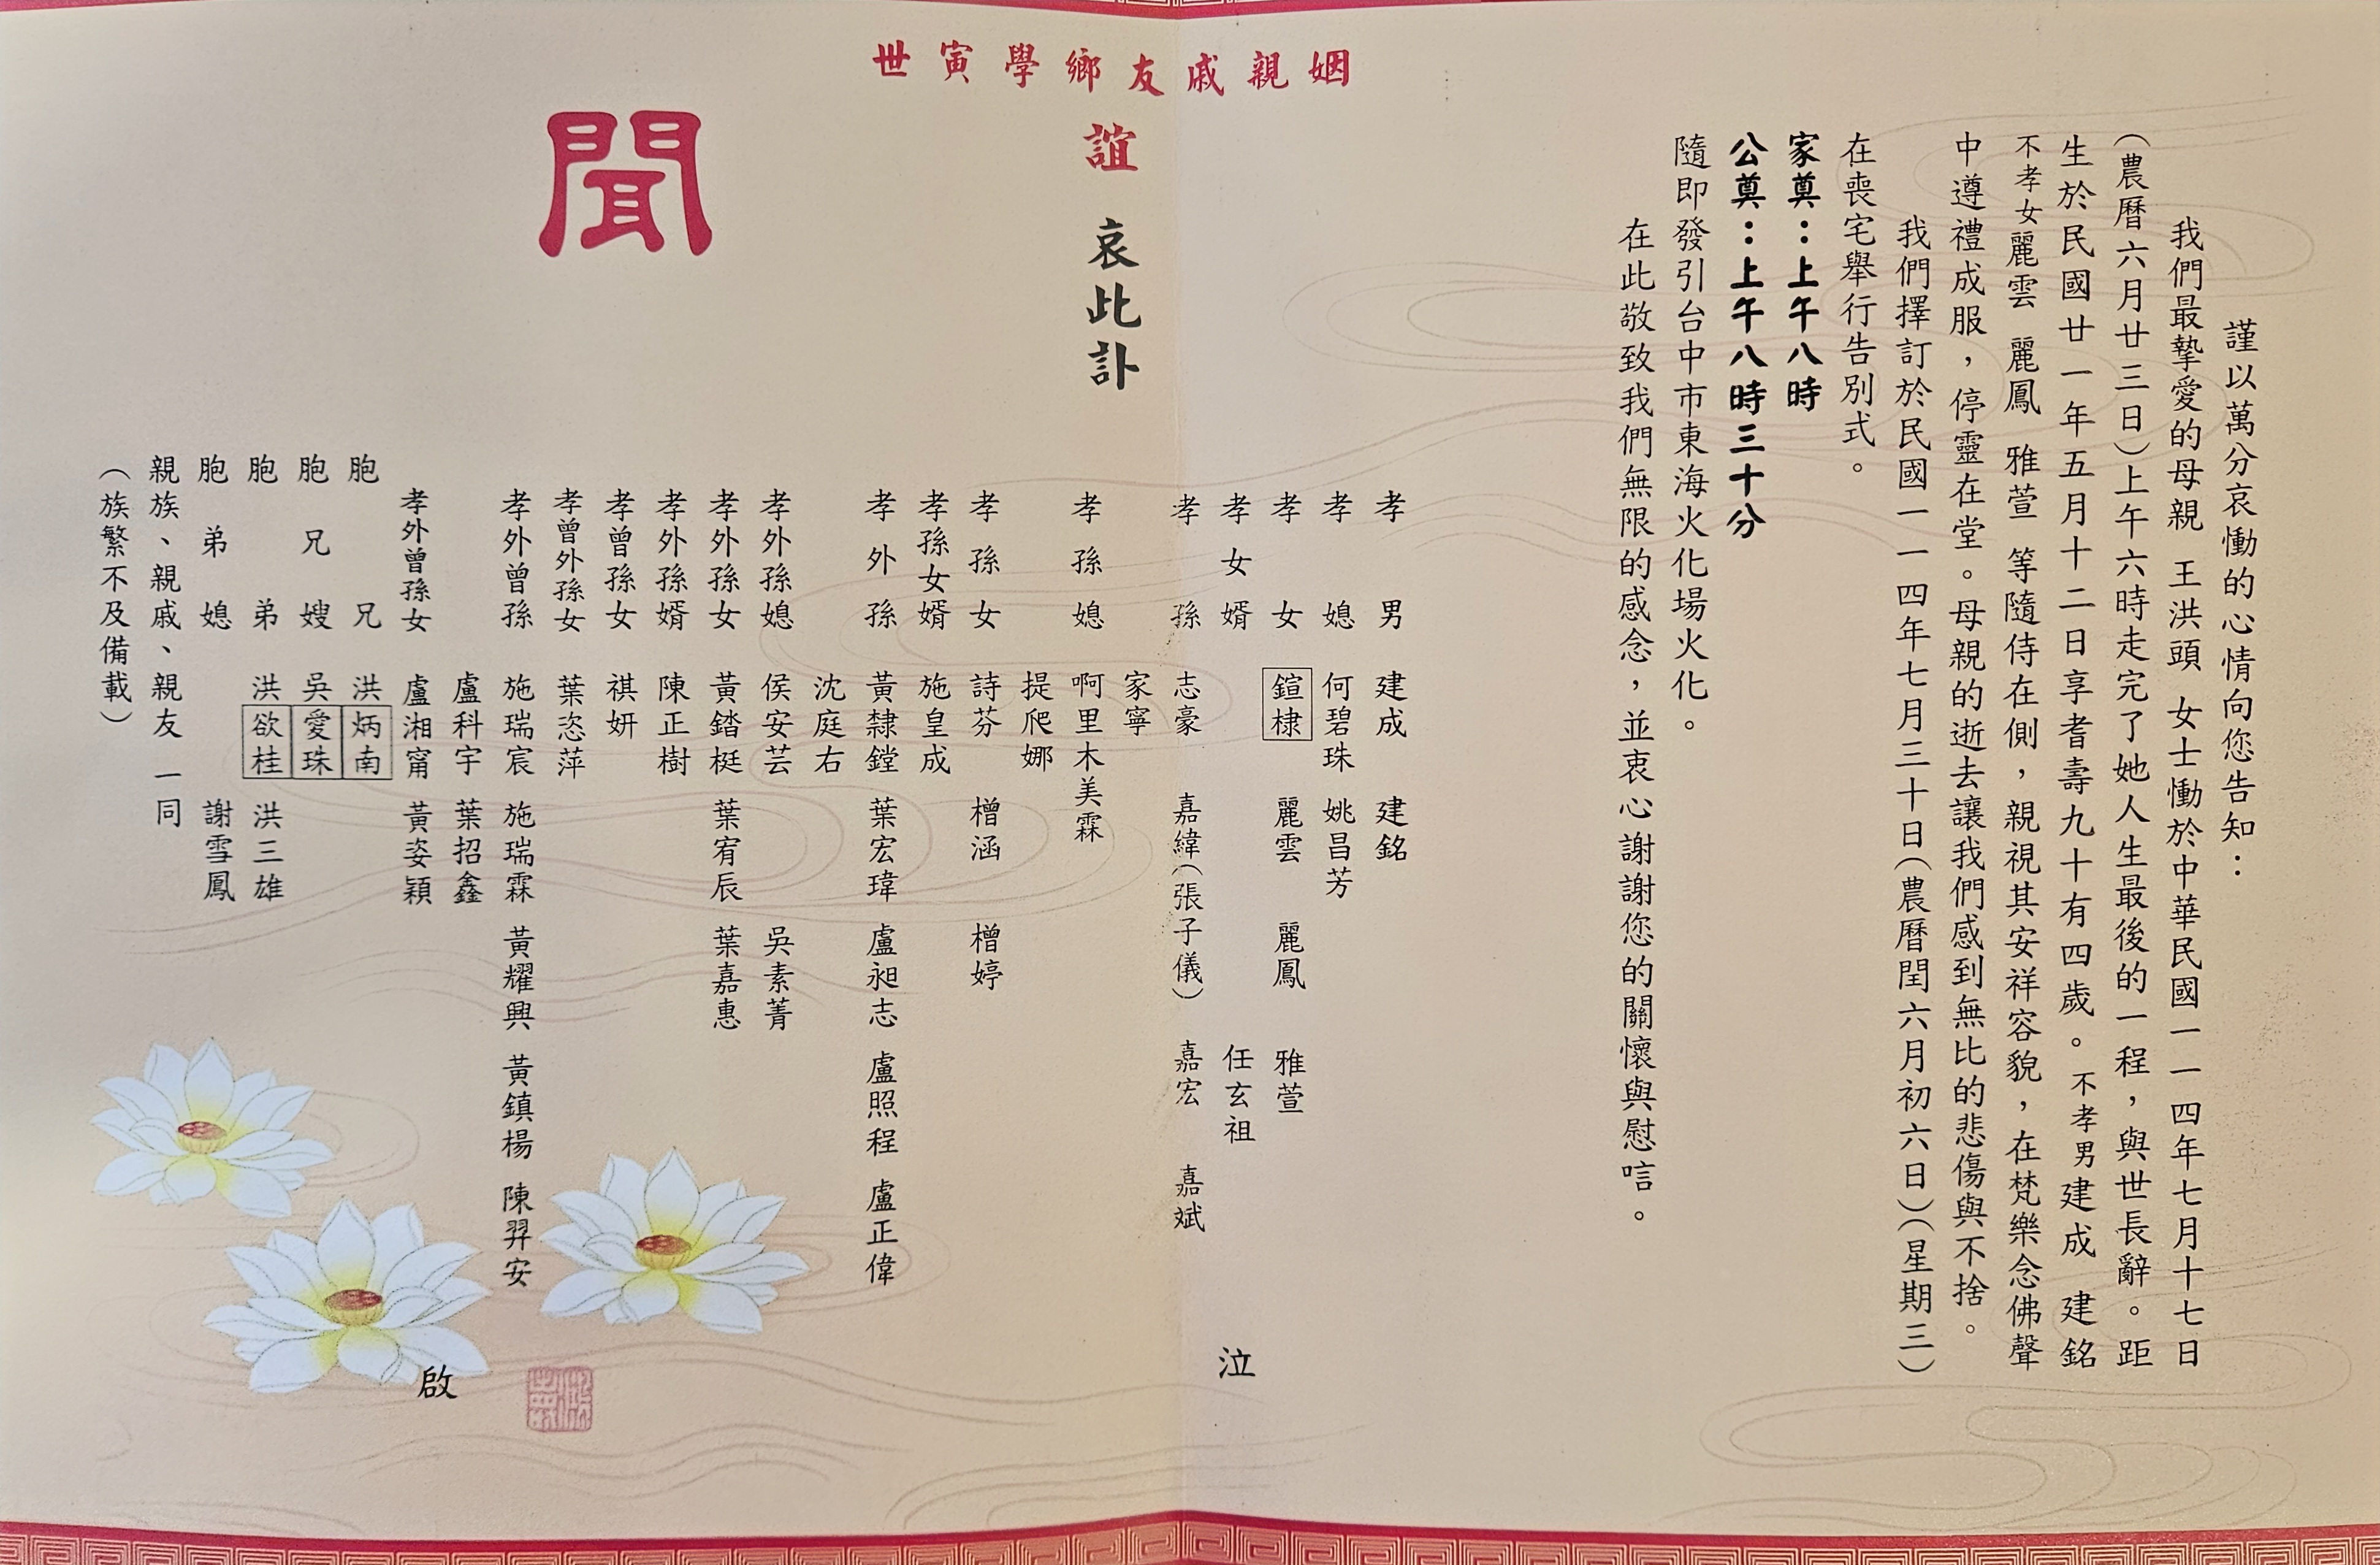 謹以萬分哀慟的心情向您告知：
我們最摯愛的母親 王洪頭 女士慟於中華民國一一四年七月十七日
（農曆六月廿三日）上午六時走完了她人生最後的一程，與世長辭。距
生於民國廿一年五月十二日享耆壽九十有四歲。不孝男建成 建銘
不孝女麗雲 麗鳳 雅萱 等隨侍在側，親視其安祥容貌，在梵樂念佛聲
中遵禮成服，停靈在堂。母親的逝去讓我們感到無比的悲傷與不捨。
我們擇訂於民國一一四年七月三十日（農曆閏六月初六日）（星期三）
在喪宅舉行告別式。
家奠：上午八時
公奠：上午八時三十分
隨即發引台中市東海火化場火化。
在此敬致我們無限的感念，並衷心謝謝您的關懷與慰唁。
姻親戚友鄉學寅世
誼 哀此訃
聞
孝男 建成 建銘
孝媳 何碧珠 姚昌芳
孝女 鍹棣 麗雲 麗鳳 雅萱
孝女婿 任玄祖
泣
孝孫 志豪 嘉緯（張子儀） 嘉宏 嘉斌
家寧
孝孫媳 啊里木美霖
提爬娜
孝孫女 詩芬 橧涵 橧婷
孝孫女婿 施皇成
孝外孫 黃隸鏜 葉宏瑋 盧昶志 盧照程 盧正偉
沈庭右
孝外孫媳 侯安芸 吳素菁
孝外孫女 黃錔梃 葉宥辰 葉嘉惠
孝外孫婿 陳正樹
孝曾孫女 祺妍
孝曾外孫女 葉恣萍
孝外曾孫 施瑞宸 施瑞霖 黃耀興 黃鎮楊 陳羿安
盧科宇 葉招鑫
孝外曾孫女 盧湘甯 黃姿穎
胞兄 洪炳南
胞兄嫂 吳愛珠
胞弟 洪欲桂 洪三雄
胞弟媳 謝雪鳳
親族、親戚、親友 一同
（族繁不及備載）
啟